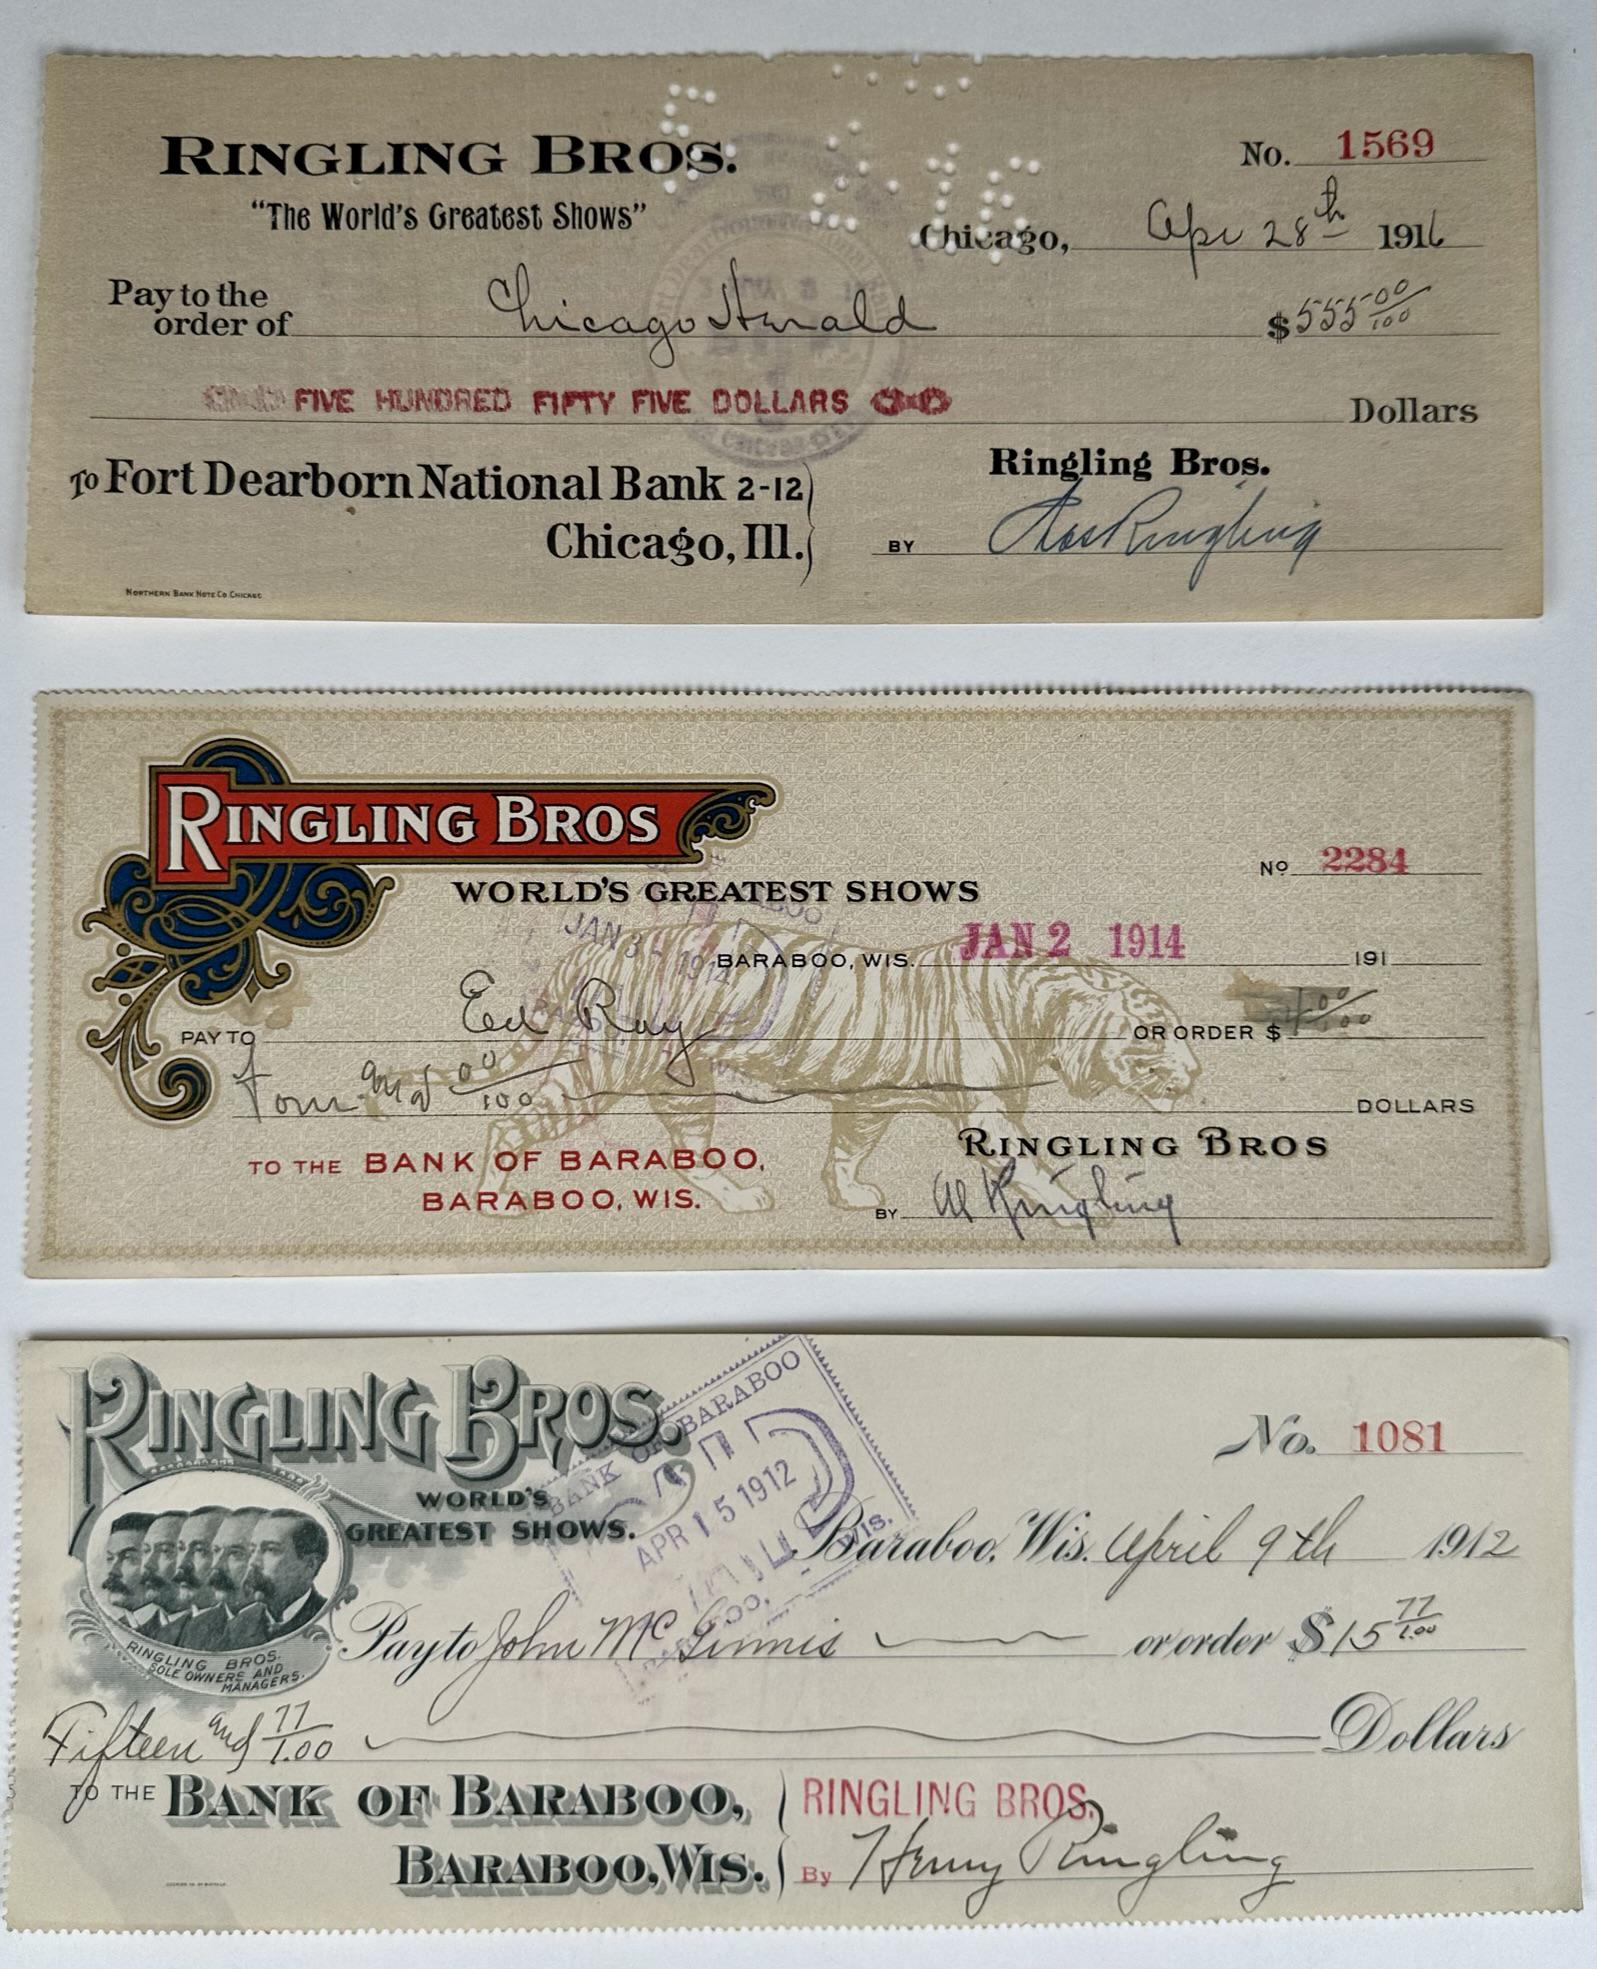 RINGLING BROS.
"The World's Greatest Shows"
No. 1569
Chicago, Apr 28th 1916
Pay to the order of Chicago Herald $555 00/100
FIVE HUNDRED FIFTY FIVE DOLLARS Dollars
To Fort Dearborn National Bank 2-12
Chicago, Ill.
Ringling Bros.
BY Chas Ringling
NORTHERN BANK NOTE CO. CHICAGO
RINGLING BROS
WORLD'S GREATEST SHOWS
No 2284
JAN 3 - 1914
BARABOO, WIS. JAN 2 1914 191
PAY TO Ed Ray OR ORDER $ 4 00/100
Four and 00/100 DOLLARS
TO THE BANK OF BARABOO,
BARABOO, WIS.
RINGLING BROS
BY Al Ringling
RINGLING BROS.
WORLD'S
GREATEST SHOWS.
RINGLING BROS.
SOLE OWNERS AND
MANAGERS.
BANK OF BARABOO
PAID
APR 15 1912
BARABOO, WIS.
No. 1081
Baraboo, Wis. April 9th 1912
Pay to John McGinnis or order $15 77/1.00
Fifteen and 77/1.00 Dollars
TO THE BANK OF BARABOO,
BARABOO, WIS.
RINGLING BROS.
By Henry Ringling